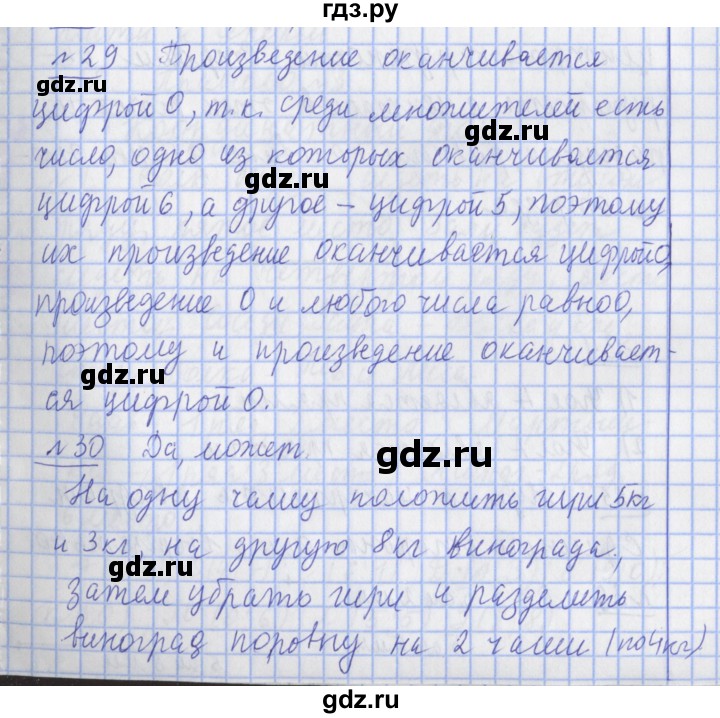 гдз.ру
№29 Произведение оканчивается
цифрой 0, т.к. среди множителей есть
gdz.ru
число, одно из которых оканчивается
gdz.ru
цифрой 6, а другое – цифрой 5, поэтому
их произведение оканчивается цифрой 0,
произведение 0 и любого числа равно 0,
поэтому и произведение оканчивает-
gdz.ru
ся цифрой 0.
№30 Да, может.
gdz.ru
На одну чашу положить гири 5кг
и 3кг, на другую 8кг винограда.,
gdz.ru
Затем убрать гири и разделить
виноград поровну на 2 чаши (по 4кг)
gdz.ru
gdz.ru